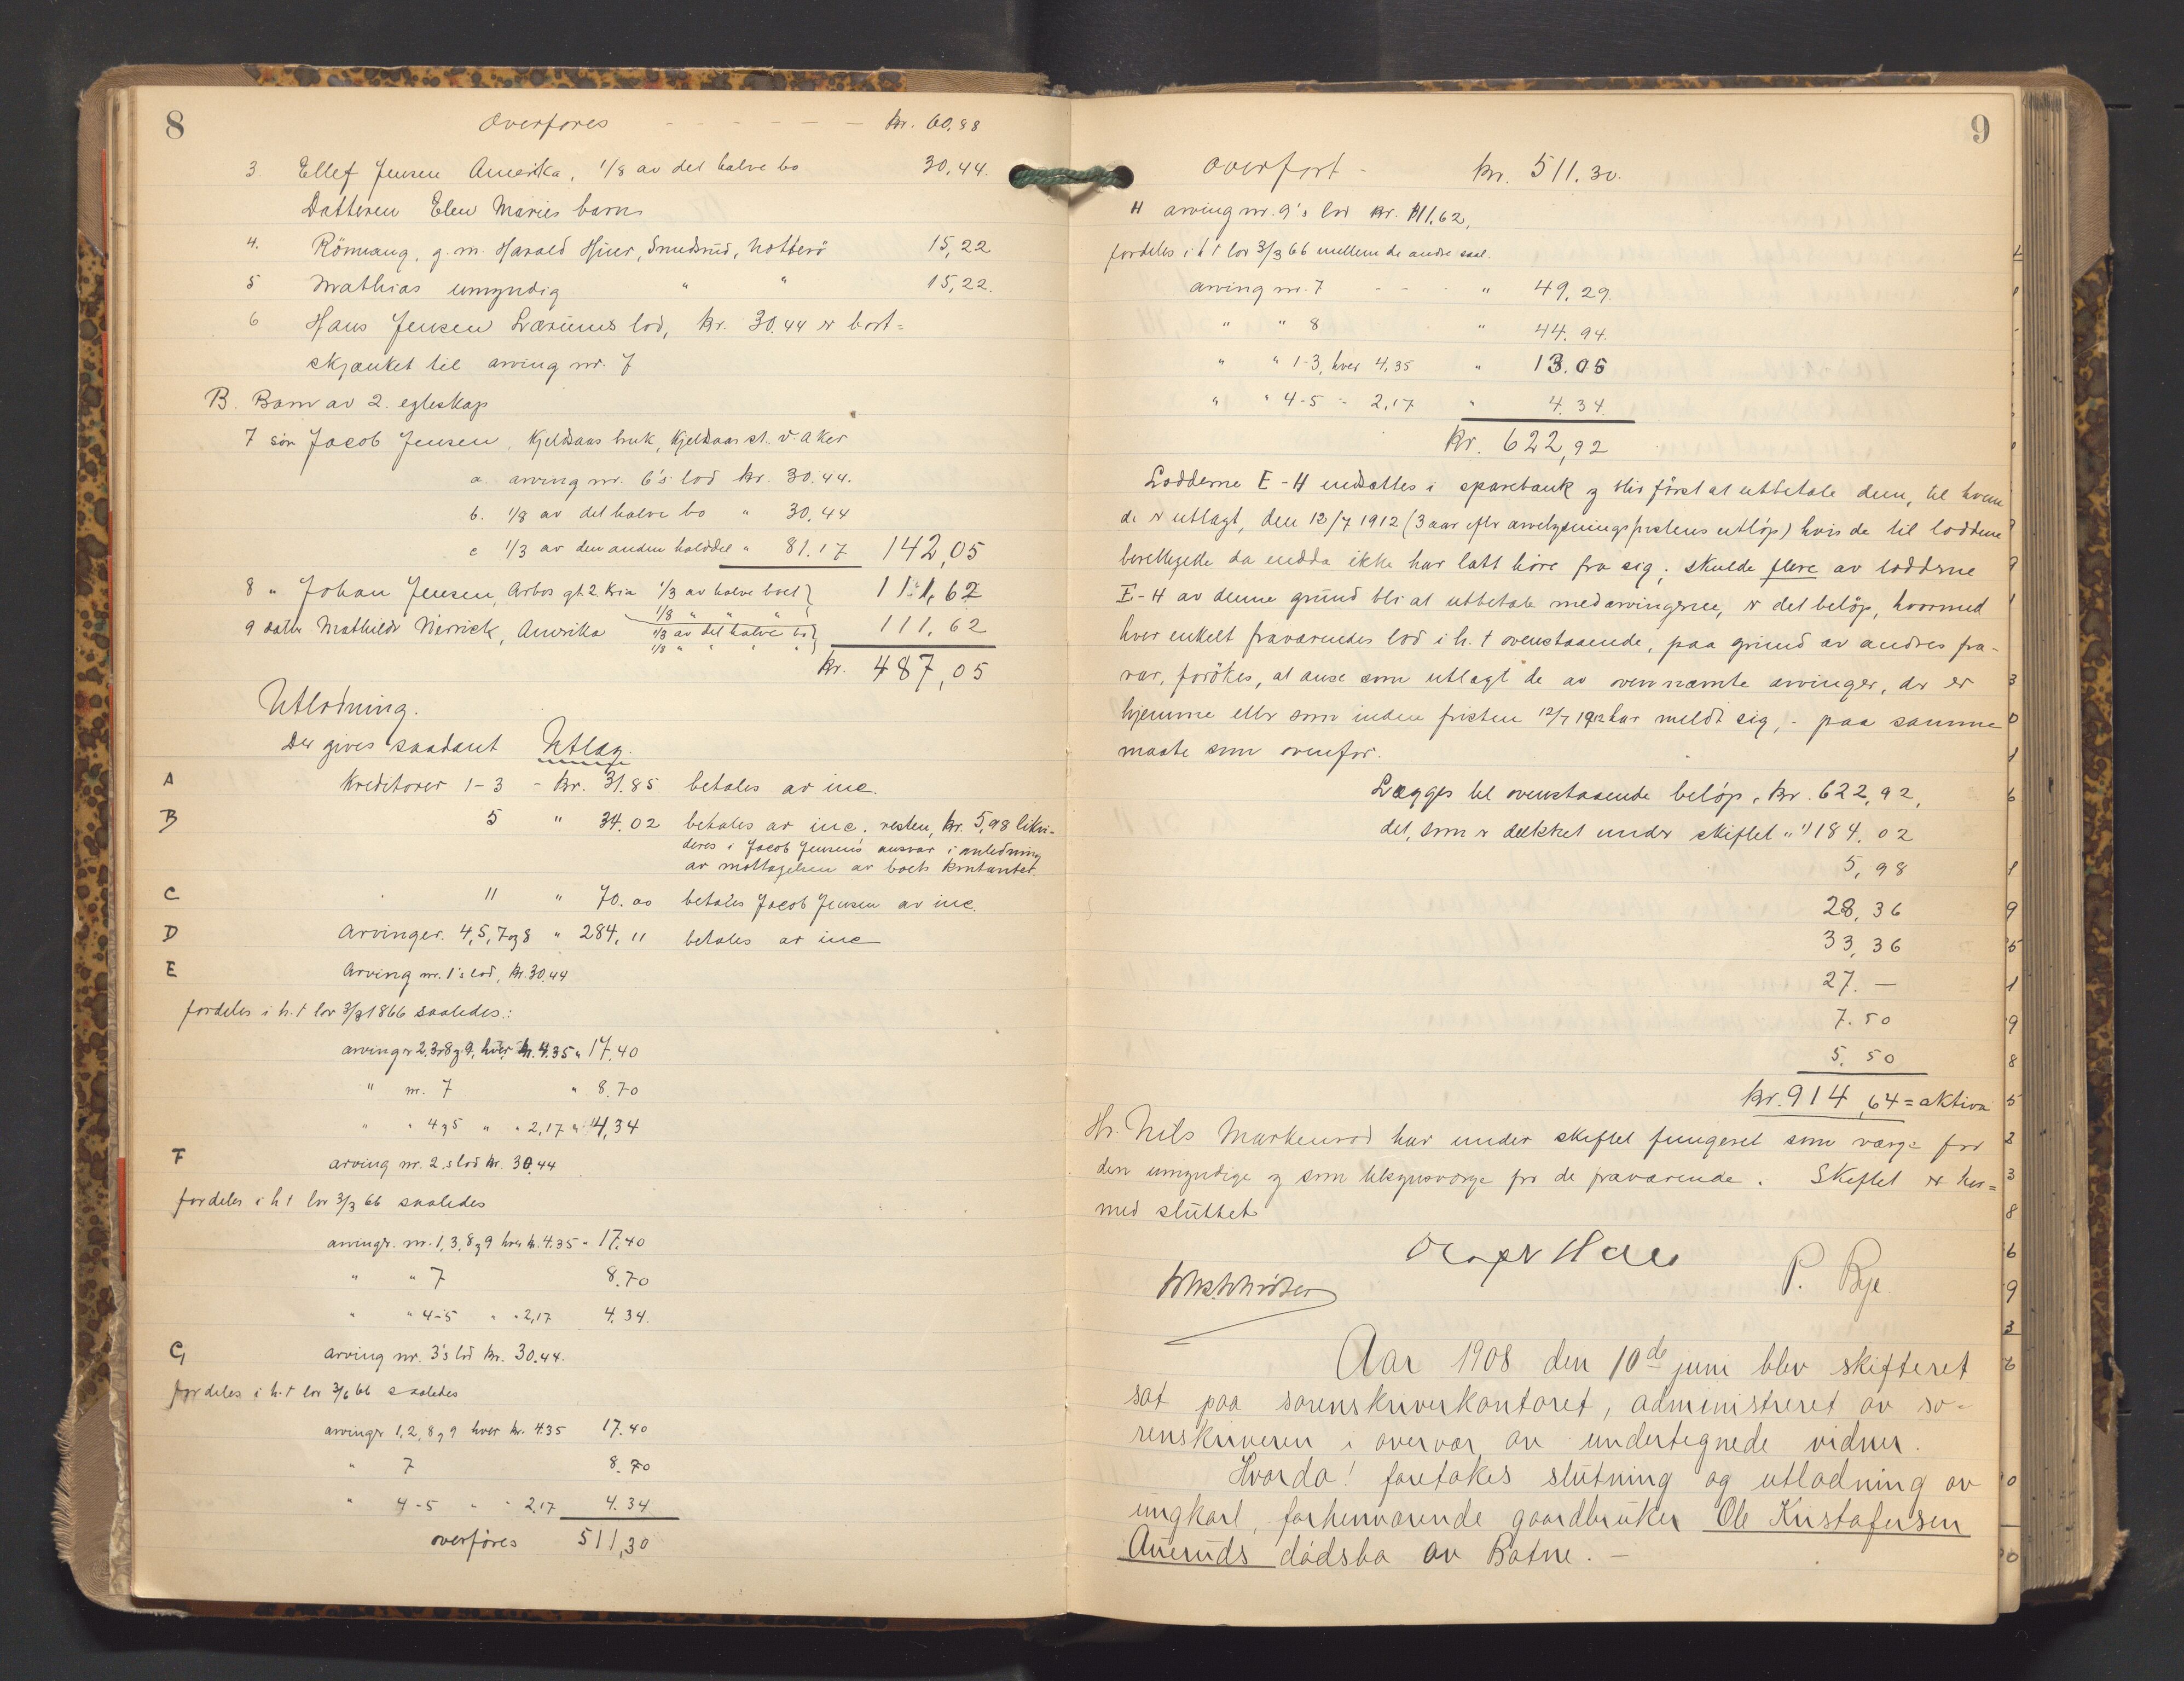 8
Overføres - - - - - - kr. 60,88
3. Ellef Jensen Amerika, 1/8 av det halve bo 30,44.
Datteren Elen Maries barn
4. g. m. Harald Smedsrud, Nøtterø 15,22
5 Mathias umyndig " " 15,22.
6 Hans Jensen lod, kr. 30.44 er bort=
skjænket til arving nr. 7
B. Barn av 2. egteskap
7 søn Jacob Jensen, Kjelsaas bruk, Kjelsaas st. V. Aker
a. arving nr. 6's lod kr. 30.44.
b. 1/8 av det halve bo " 30,44
c 1/3 av den anden halvdel " 81.17 142,05
8 " Johan Jensen, Arbos gt. 2 Kria 1/3 av halve boet } 111,62
1/8 " " "
9 datter Mathilde Amerika 1/3 av det halve bo } 111.62
1/8 " " " "
kr. 487,05
Utlodning.
Der gives saadant Utlæg.
A Kreditorer 1-3 - kr. 31.85 betales av inc.
B 5 " 34.02 betales av inc. resten, kr. 5,98 likvi-
deres i Jacob Jensens ansvar i anledning
av mottagelsen av boets kontanter.
C 11 " 70.00 betales Jacob Jensen av inc.
D Arvinger. 4,5,7 og 8 " 284,11 betales av inc
E Arving nr. 1's lod, kr. 30,44
fordeles i h. t lov 3/3 1866 saaledes:
arvinger 2,3,8 og 9, hver kr. 4.35 " 17,40
" nr. 7 " 8.70
" " 4 og 5 " " 2,17 " 4,34
F arving nr. 2's lod kr. 30.44
fordeles i h t lov 3/3 66 saaledes
arvinger. nr. 1,3,8 og 9 hver kr. 4.35 " 17,40
" " 7 8.70
" " 4-5 " " 2,17 4,34.
G arving nr. 3's lod kr. 30.44.
fordeles i h. t lov 3/3 66 saaledes
arvinger 1,2,8 og 9 hver kr. 4.35 17.40
" 7 8.70
" 4-5 " " 2.17 4.34
overføres 511,30
9
Overført - kr. 511.30.
H arving nr. 9's lod kr. 111.62,
fordeles i h t lov 3/3 66 mellem de andre saal.
arving nr. 7 - - " 49,29.
" " 8 " 44.94.
" " 1-3, hver 4,35 " 13.05
" " 4-5 - 2,17 " 4.34
kr. 622,92
Lodderne E-H indsættes i sparebank og blir først at utbetale dem, til hvem
de er utlagt, den 12/7 1912 (3 aar efter arvelysningsfristens utløp) hvis de til loddene
berettigede da endda ikke har latt høre fra sig; skulde flere av lodderne
E-H av denne grund bli at utbetale medarvingerne, er det beløp, hvormed
hver enkelt fraværendes lod i h. t ovenstaaende, paa grund av andres fra-
vær, forøkes, at anse som utlagt de av ovennævnte arvinger, der er
hjemme eller som inden fristen 12/7 1912 har meldt sig, - paa samme
maate som ovenfor.
Lægges til ovenstaaende beløp, kr. 622,92,
det, som er dækket under skiftet " 184.02
5,98
28,36
33,36
27.-
7.50
5.50
kr. 914,64 = aktiva
Hr. Nils Markerud har under skiftet fungeret som værge for
den umyndige og som tilsynsværge for de fraværende. Skiftet er her=
med sluttet
P. Bye
Aar 1908 den 10de juni blev skifteret
sat paa sorenskriverkontoret, administreret av so-
renskriveren i overvær av undertegnede vidner.
Hvorda! foretakes slutning og utlodning av
ungkarl, forhenværende gaardbruker Ole Kristofersen
Aneruds dødsbo av Botne. -